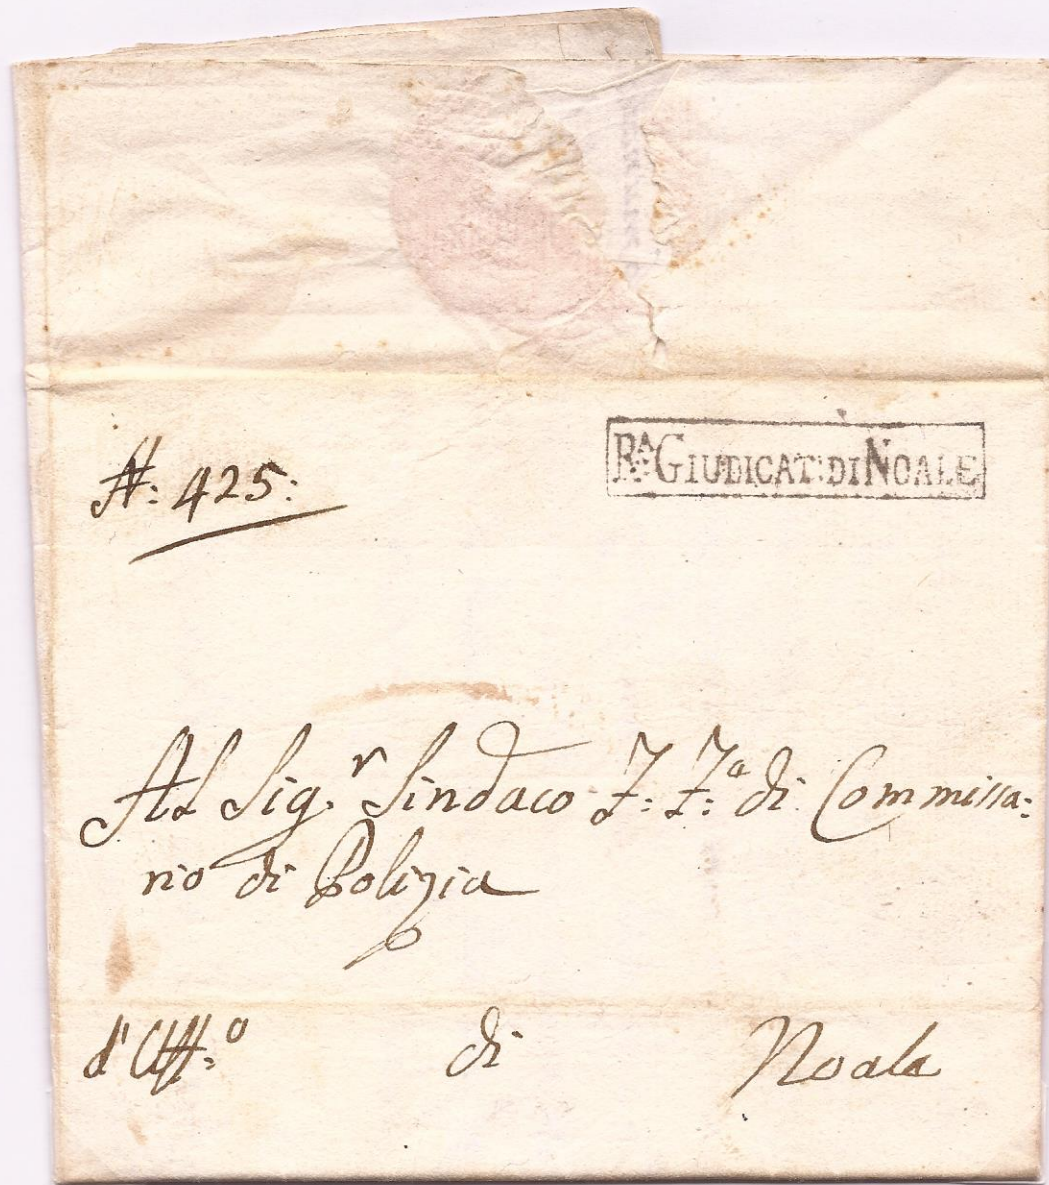 N: 425:
Rª: GIUDICAT: DI NOALE
Al Sig.r Sindaco F: F:a di Commissa:
rio di Polizia
d'Uff:o di Noale